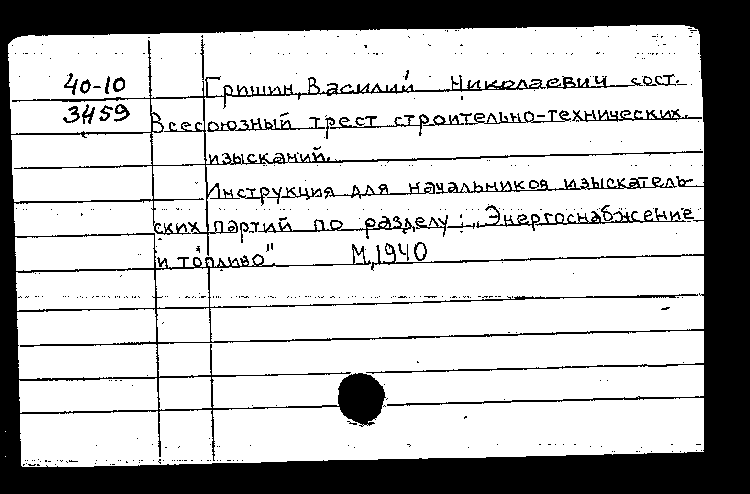 40-10
3459
Гришин, Василий Николаевич сост.
Всесоюзный трест строительно-технических
изысканий.
Инструкция для начальников изыскатель-
ских партий по разделу: „Энергоснабжение
и топливо". М, 1940